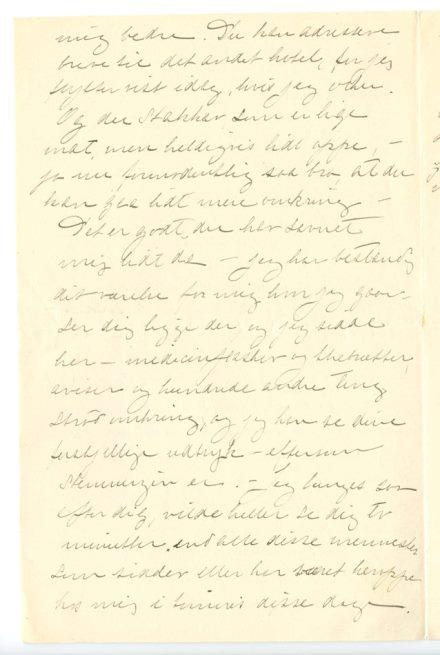 mig bedre. Du kan adressere
breve til det andet hotel, for jeg
flytter vist idag, hvis jeg orker.
Og du Stakkar, som er lige
mat, men heldigvis lidt oppe, –
ja nu, formodentlig saa bra, at du
kan gaa lidt mere omkring –
Det er godt, du har savnet
mig lidt da – jeg har bestandig
dit værelse for mig, hvor jeg gaar –
Ser dig ligge der, og jeg sidde
her – medicinflasker og
aviser og hundrede andre ting
strød omkring, og jeg kan se dine
forskjellige udtryk – eftersom
Stemningen er. – Jeg længes saa
efter dig, vilde heller se dig to
minutter, end alle disse mennesker
som sidder eller har været heroppe
hos mig i timevis disse dage.